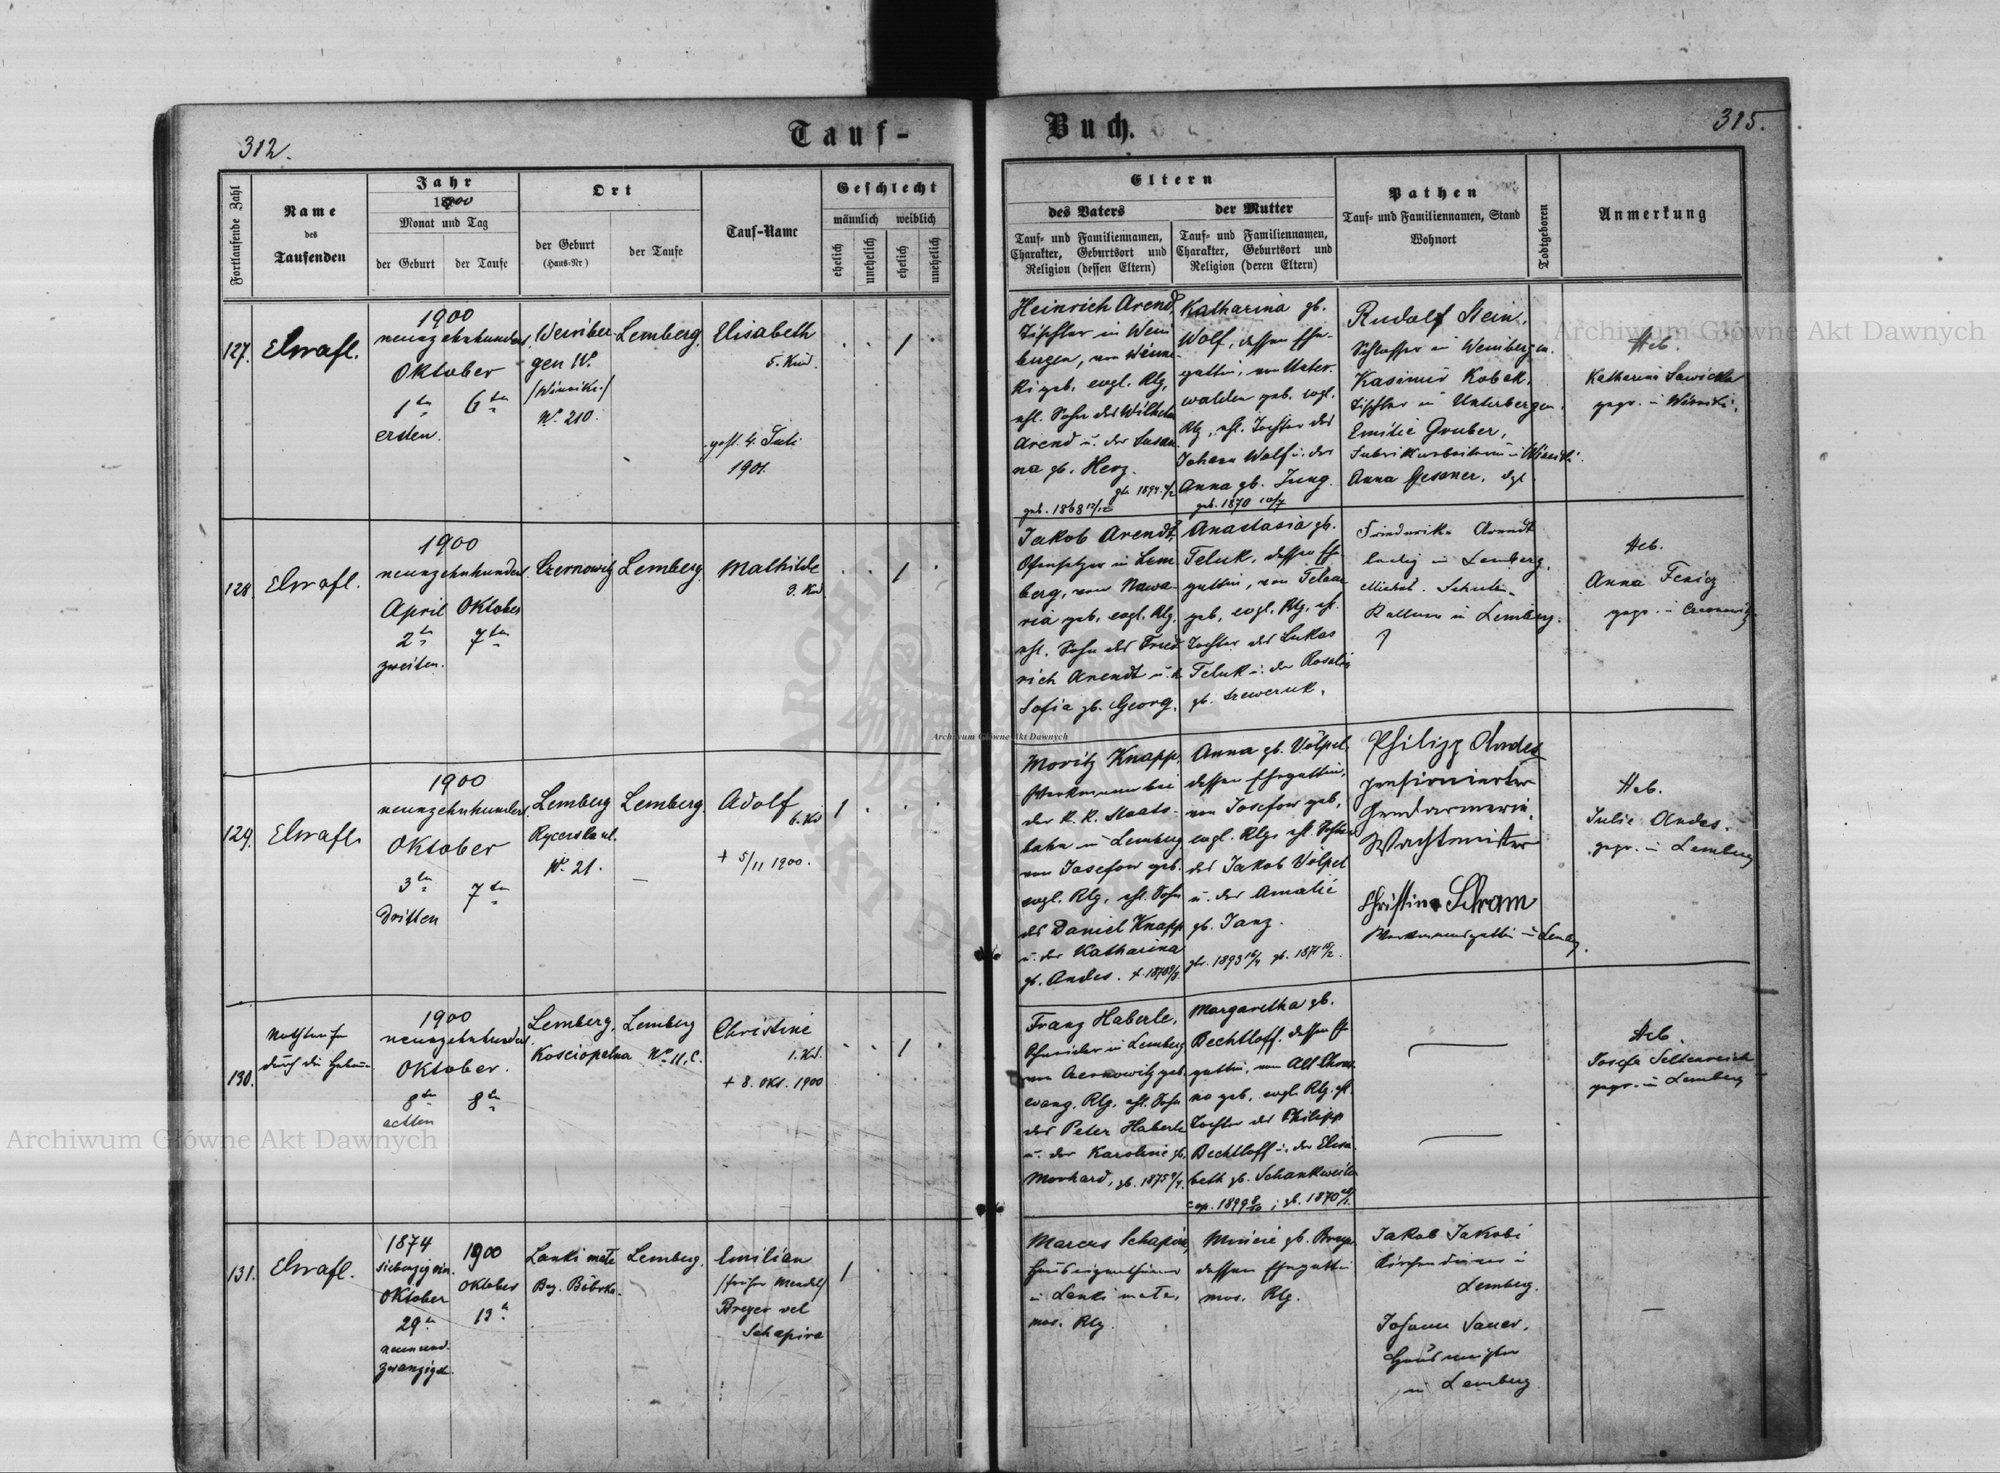 312.
Tauf-
Buch.
315.
Fortlaufende Zahl
Name
des
Taufenden
Jahr
1900
Monat und Tag
der Geburt
der Taufe
Ort
der Geburt
(Haus-Nr)
der Taufe
Tauf-Name
Geschlecht
männlich
weiblich
ehelich
unehelich
ehelich
unehelich
Eltern
des Vaters
Tauf- und Familiennamen,
Charakter, Geburtsort und
Religion (dessen Eltern)
der Mutter
Tauf- und Familiennamen,
Charakter, Geburtsort und
Religion (deren Eltern)
Pathen
Tauf- und Familiennamen, Stand
Wohnort
Todtgeboren
Anmerkung
127.
1900
neunzehnhundert
Oktober
1ten
6ten
ersten.
Weinber
gen Nr.
/Winniki/
Nr. 210.
Lemberg.
Elisabeth
5. Kind.
gest. 4. Juli
1901.
1
Heinrich Arend,
Tischler in Wein
bergen, von Winni-
ki geb. evgl. Rlg,
ehl. Sohn des Wilhelm
Arend u. der Susan
na gb. Herz.
geb. 1868
Katharina gb.
Wolf, dessen Ehe-
gattin, von Unter-
walden geb. evgl.
Rlg, ehl. Tochter des
Johann Wolf u. der
Anna gb. Jung.
geb. 1870
Rudolf Stein,
Schlosser in Weinbergen.
Kasimir Kobak,
Tischler in Unterbergen.
Emilie Gruber,
Fabriksarbeiterin in Winniki.
Anna Gessner, dgl.
Heb.
Katharina Sawicka
gepr. in Winniki.
128.
1900
neunzehnhundert
April
Oktober
2ten
7ten
zweiten.
Czernowitz
Lemberg.
Mathilde
3. Kind
1
Jakob Arendt,
Ofensetzer in Lem
berg, von Nawa-
ria geb. evgl. Rlg,
ehl. Sohn des Fried
rich Arendt u. d.
Sofia gb. Georg.
Anastasia gb.
Teluk, dessen Ehe
gattin, von
geb, evgl. Rlg, ehl.
Tochter des Lukas
Teluk u. der Rosalia
gb. Szewczuk.
Friederike Arendt
ledig in Lemberg.
Michal
in Lemberg.
Heb.
Anna
gepr. in Czernowitz.
129.
1900
neunzehnhundert
Oktober
3ten
7ten
dritten
Lemberg
Rycerska ul.
Nr. 21.
Lemberg.
Adolf
6. Kd
+ 5/11 1900.
1
Moritz Knapp,
Werkmann bei
der K. K. Staats-
bahn in Lemberg
von Josefow geb.
evgl. Rlg, ehl. Sohn
des Daniel Knapp
u. der Katharina
gb. Andes.
Anna gb. Völpel.
dessen Ehegattin,
von Josefow geb,
evgl. Rlg, ehl. Tochter
des Jakob Völpel
u. der Amalie
gb. Janz.
Philipp Andes
pensionierter
Gendarmerie-
Wachtmeister
Christine Schram
Werkmannsgattin in Lemberg.
Heb.
Julie Andes.
gepr. in Lemberg
130.
Nothtaufe
durch die Hebamme
1900
neunzehnhundert
Oktober.
8ten
8ten
achten
Lemberg.
Kosciopelna
Lemberg
Nr. 11. C.
Christine
1. Kd.
+ 8. Okt. 1900
1
Franz Haberle,
Schneider in Lemberg
von Czernowitz geb
evang. Rlg, ehl. Sohn
des Peter Haberle
u. der Karoline gb.
Morhard,
Margaretha gb.
Bechtloff, dessen Ehe
gattin, von Alt
no geb, evgl. Rlg. ehl.
Tochter des Philipp
Bechtloff u. der Elisa
beth gb. Schankweiler
Heb.
Josefa Seltenreich
gepr. in Lemberg
131.
1874
Oktober
29ten
neunund
zwanzigst.
1900
Oktober
13ten
Lanki małe
Bez. Bóbrka.
Lemberg.
Emilian
/früher Mendel/
Breyer vel
Schapira
1
Marcus Schapira,
Hauseigenthümer
in Lanki małe,
mos. Rlg.
Mincie gb. Breyer
dessen Ehegattin
mos. Rlg.
Jakob Jakobi
Kirchendiener in
Lemberg.
Johann Sauer,
Hausmeister
in Lemberg
Archiwum Główne Akt Dawnych
Archiwum Główne Akt Dawnych
Archiwum Główne Akt Dawnych